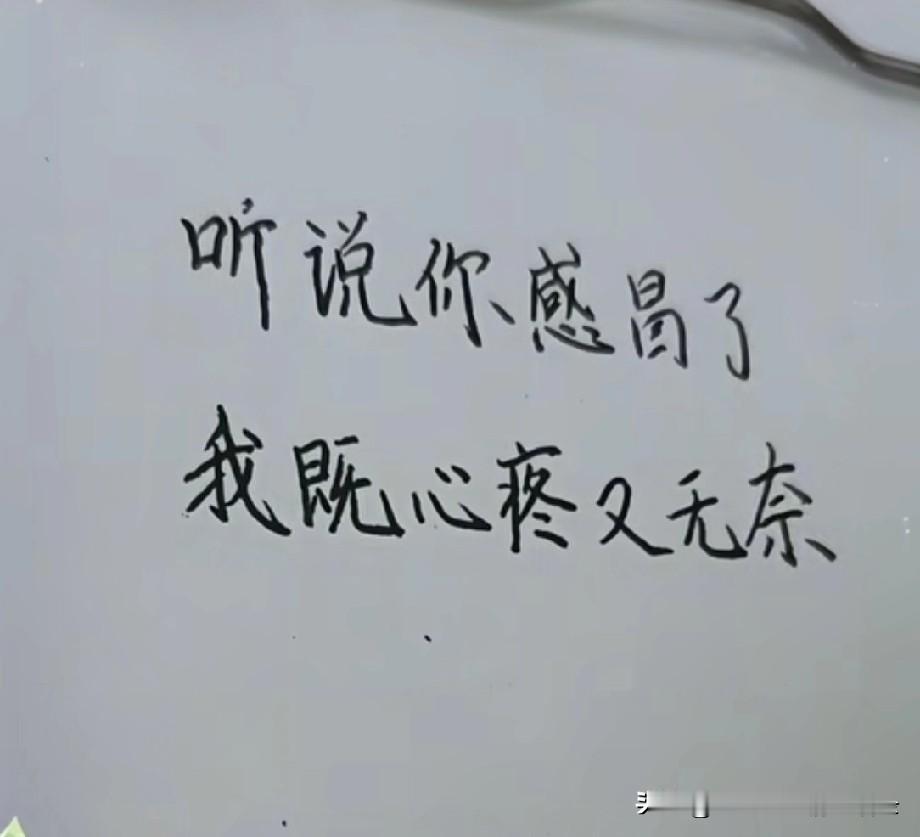 听说你感冒了
我既心疼又无奈